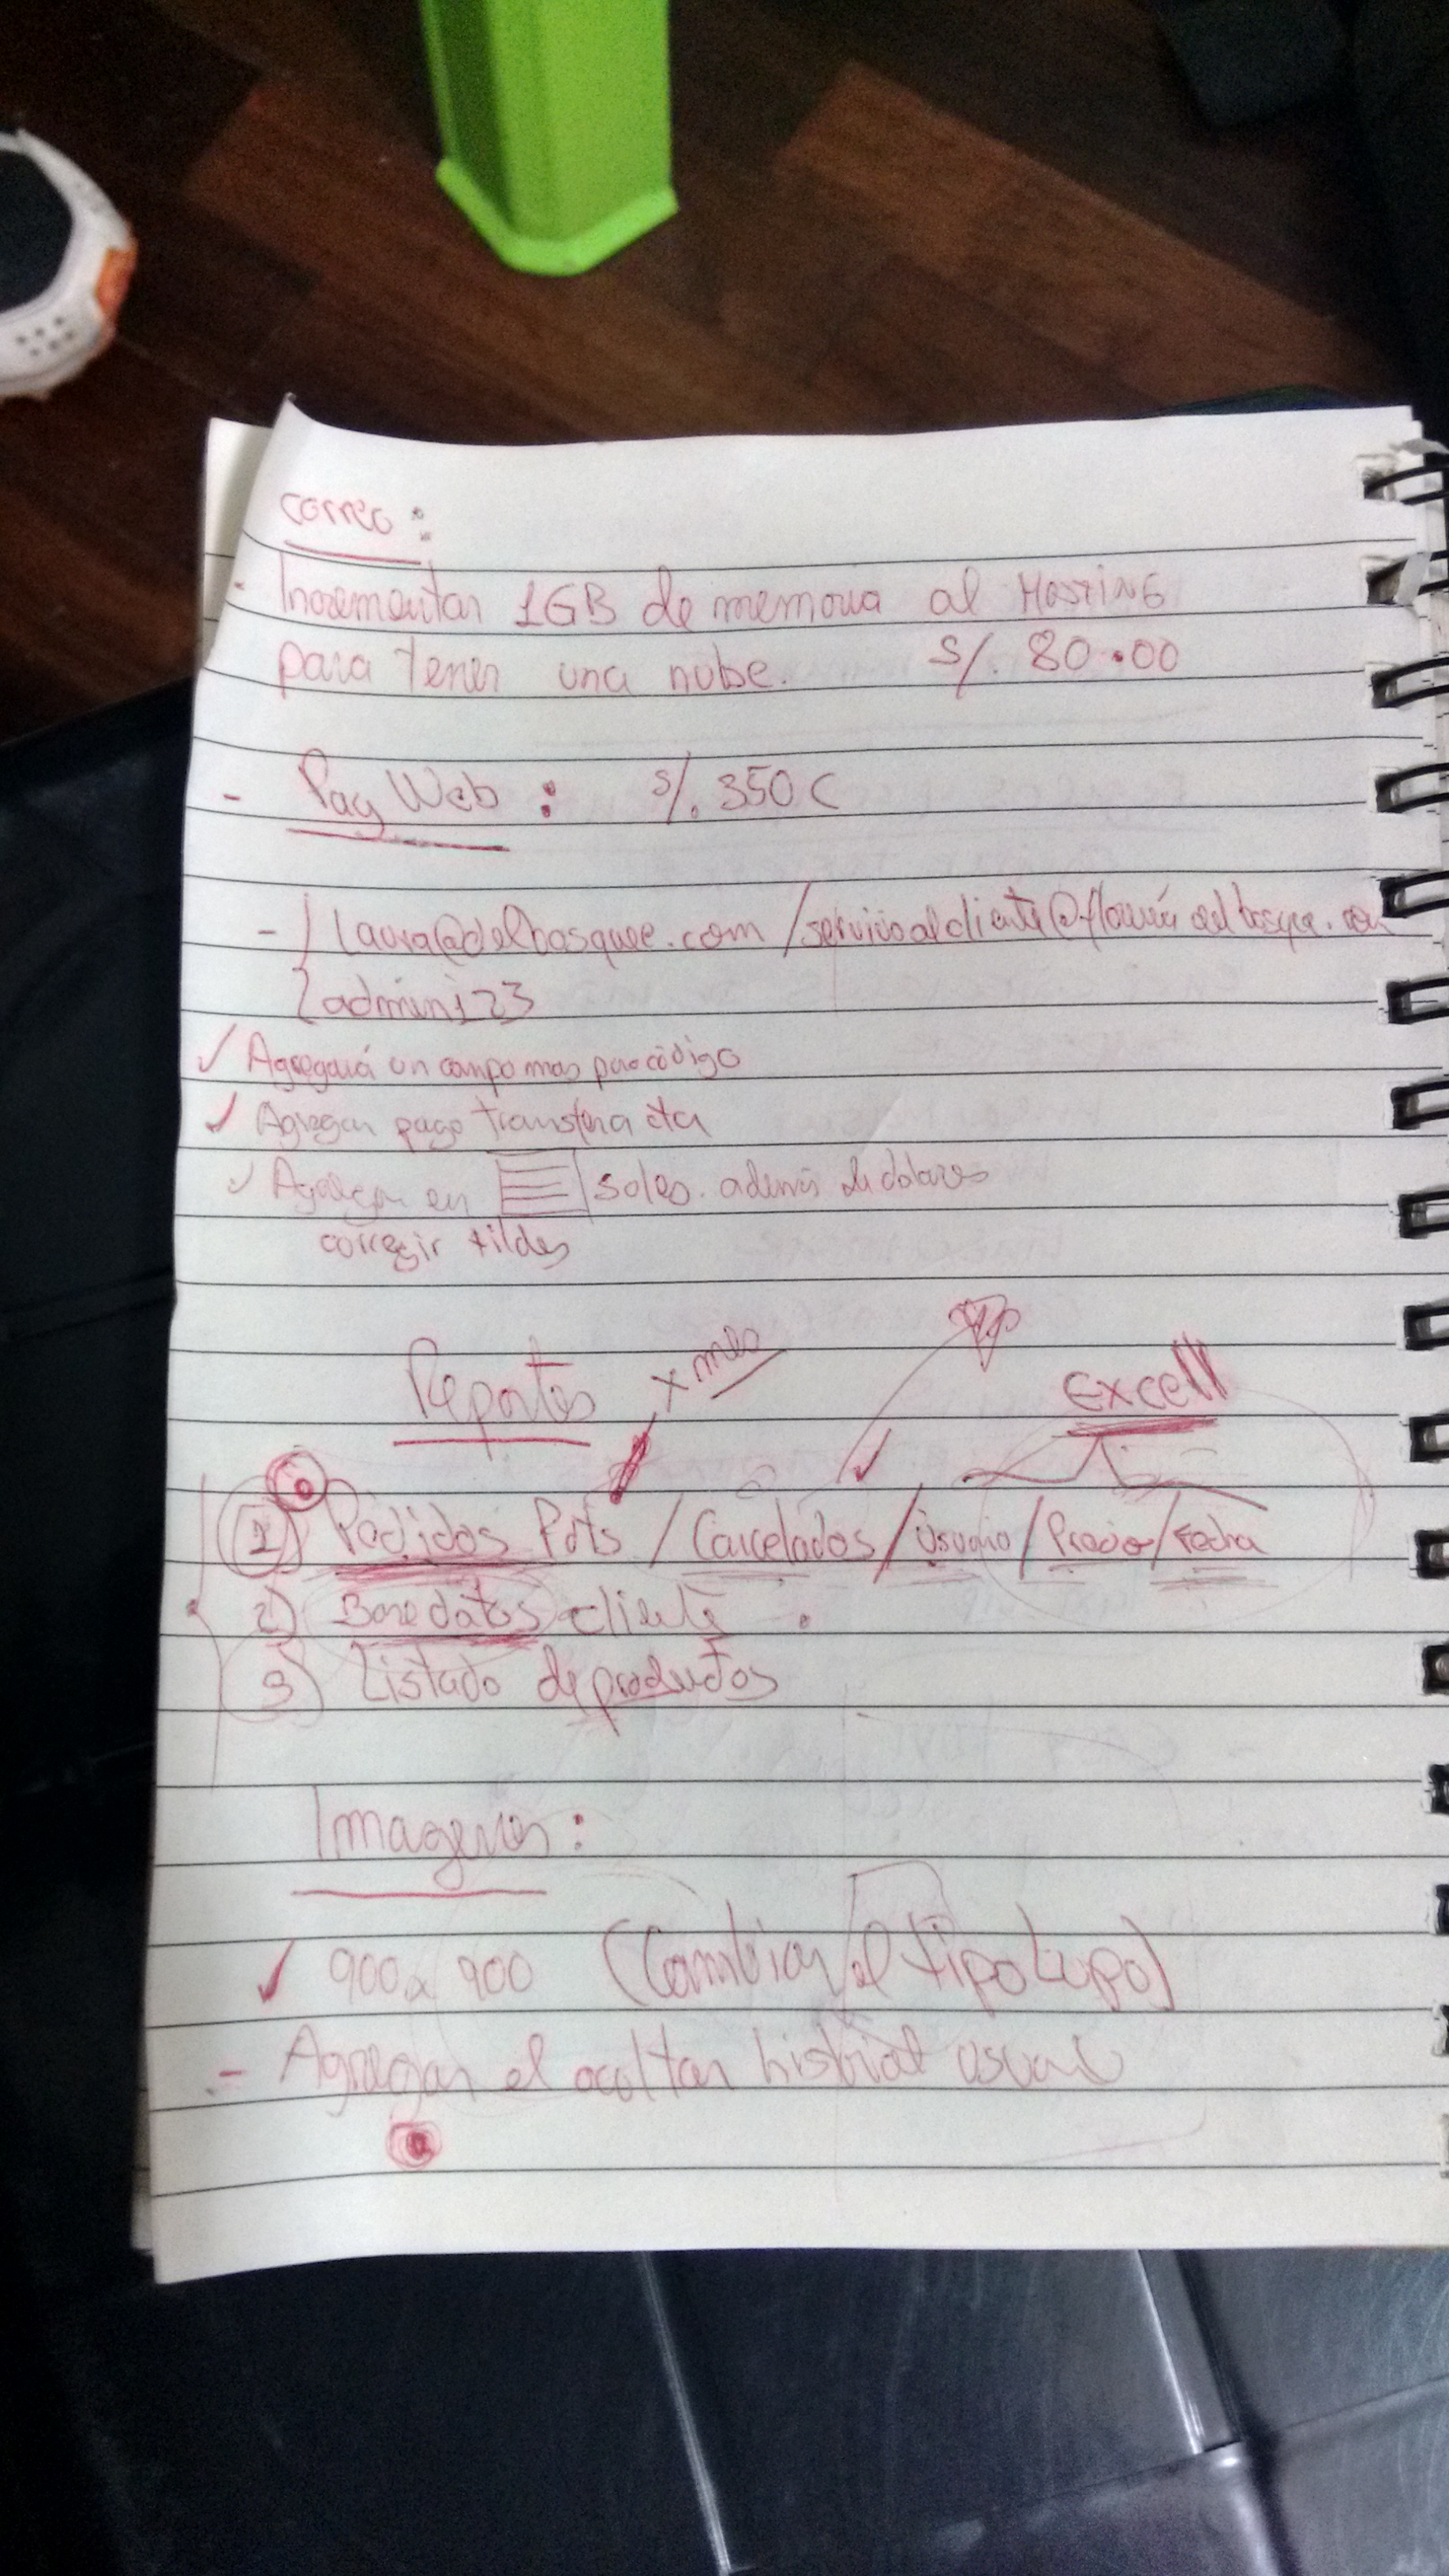 correo:
- Incrementar 1GB de memoria al HOSTING
para tener una nube. S/. 80.00
- Pag Web: S/. 350
- laura@delbosque.com / servicioalcliente@
admin123
✓ Agregará un campo mas para código
✓ Agregar pago transferencia cta
✓ Agregar en soles. además de dolares
corregir tildes
Reportes x mes Excell
1) Pedidos Pdts / Cancelados / Usuario / Precio / Fecha
2) Base datos cliente
3) Listado de productos
Imagenes:
✓ 900 x 900 (Cambiar el tipo
- Agregar el ocultar